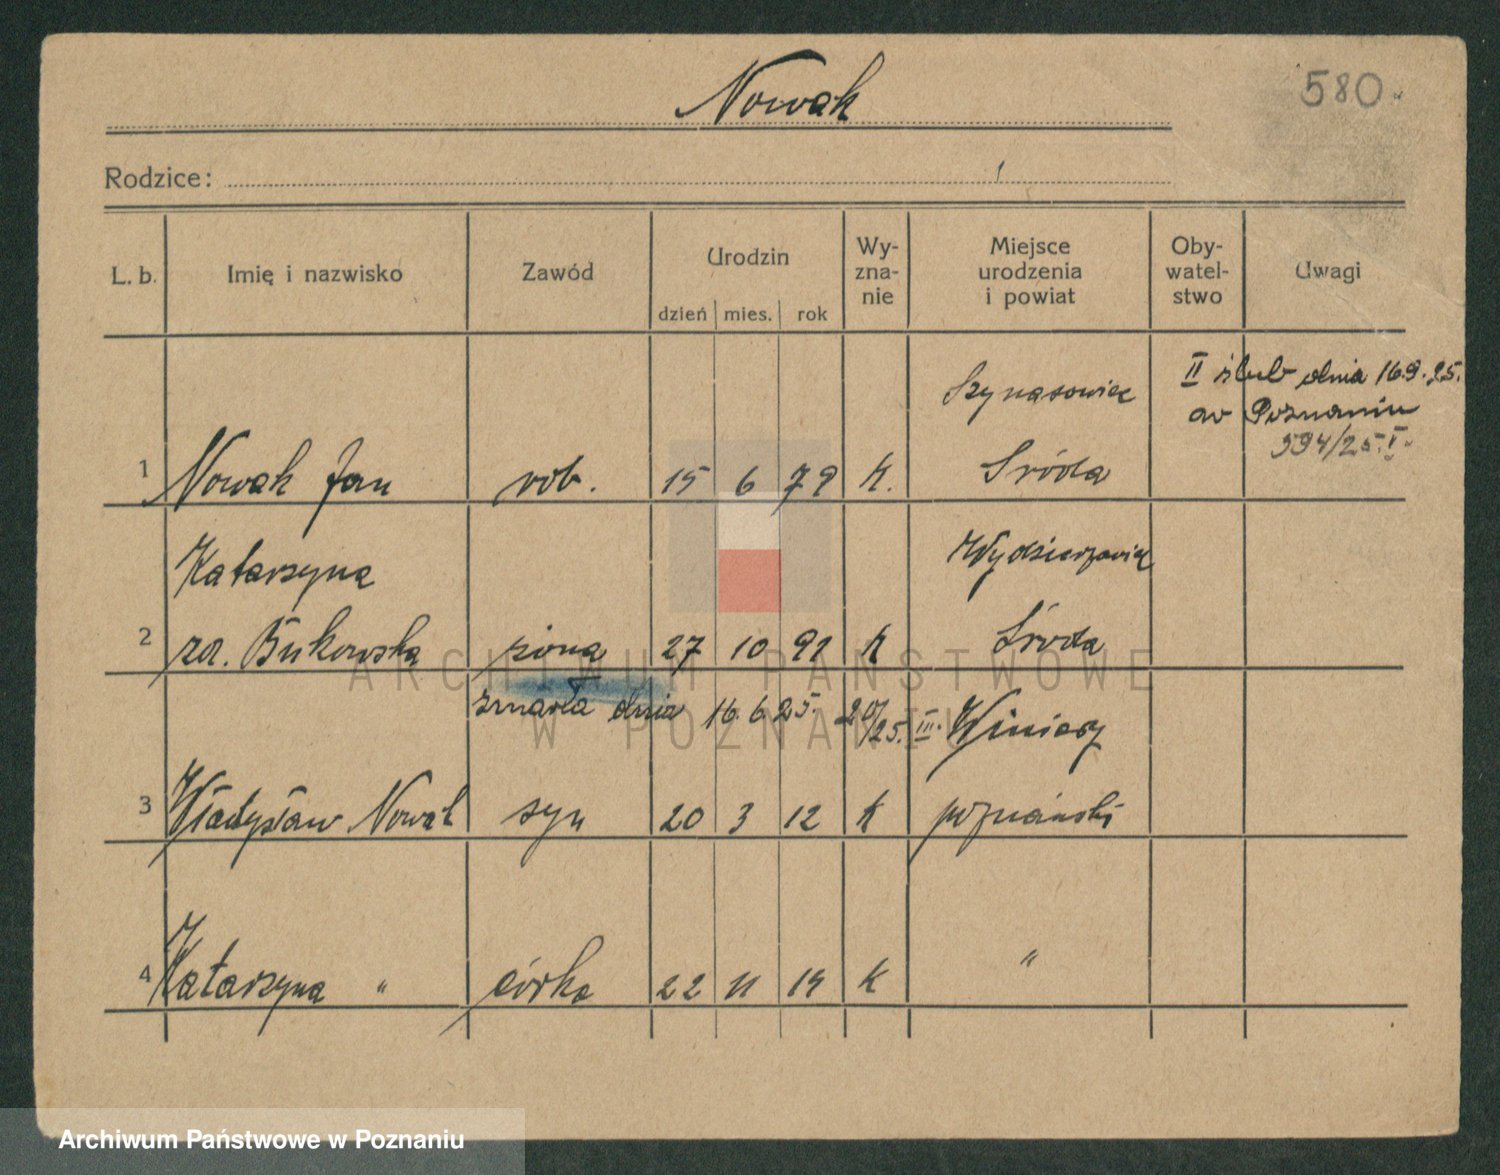 Nowak
580
Rodzice:
L. b. Imię i nazwisko Zawód Urodzin dzień mies. rok Wy-zna-nie Miejsce urodzenia i powiat Oby-watel-stwo Uwagi
II ślub dnia 16.9.25.
w Poznaniu
594/25. I.
1 Nowak Jan rob. 15 6 79 K. Środa
Katarzyna
2 za. Bukowska żona 27 10 91 K Środa
zmarła dnia 16.6.25. 20/25. III. Winiary
3 Władysław Nowak syn 20 3 12 K poznański
4 Katarzyna " córka 22 11 14 K "
ARCHIWUM PAŃSTWOWE
W POZNANIU
Archiwum Państwowe w Poznaniu